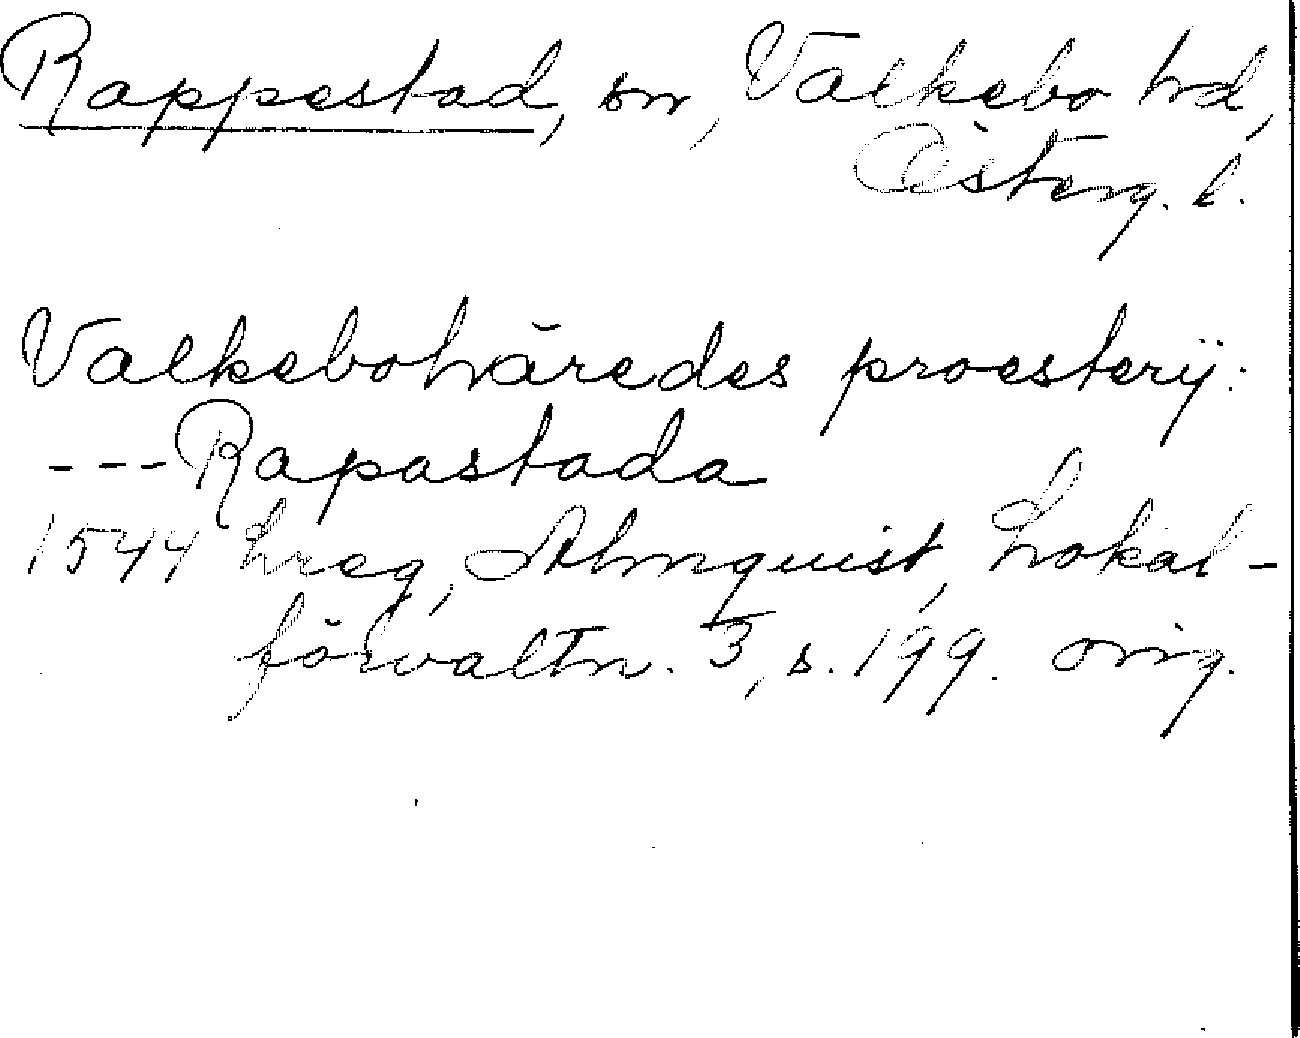 Rappestad, sn, Valkebo hd,
Österg. l.
Valkebohäredes proesterij:
---Rapastada
1544 Lreg, Almquist, Lokal-
förvaltn. 3, s. 199. orig.